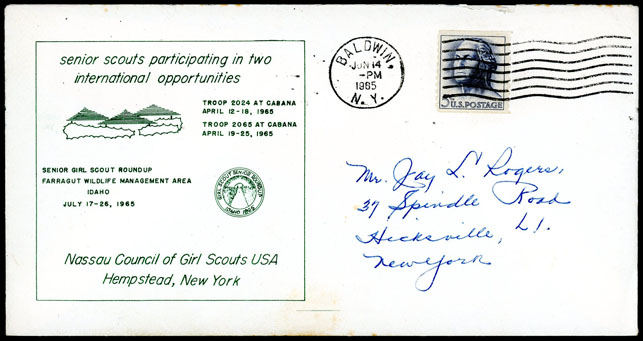 senior scouts participating in two
international opportunities
TROOP 2024 AT CABANA
APRIL 12-18, 1965
TROOP 2065 AT CABANA
APRIL 19-25, 1965
SENIOR GIRL SCOUT ROUNDUP
FARRAGUT WILDLIFE MANAGEMENT AREA
IDAHO
JULY 17-26, 1965
GIRL SCOUT SENIOR ROUNDUP
IDAHO 1965
Nassau Council of Girl Scouts USA
Hempstead, New York
BALDWIN,
JUN 14
-PM
1965
N.Y.
5¢ U.S. POSTAGE
Mr. Jay L. Rogers,
37 Spindle Road
Hicksville, L.I.
New York